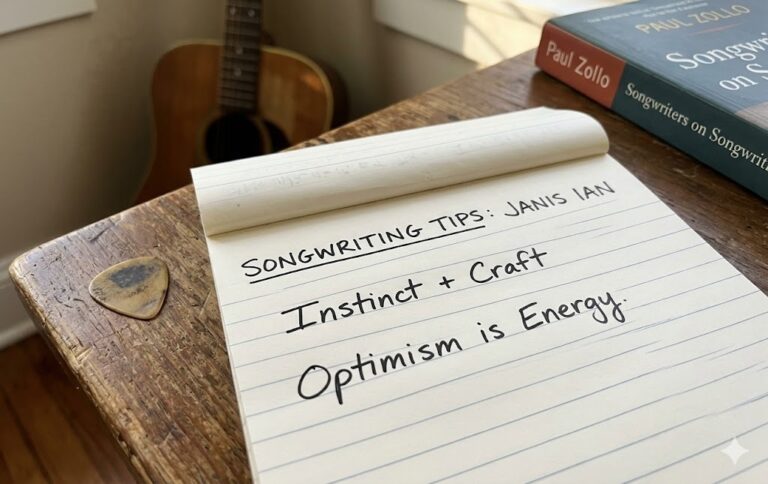 PAUL ZOLLO
Songwri
on S
Paul Zollo
Songwriters on Songwriti
SONGWRITING TIPS: JANIS IAN
Instinct + Craft
Optimism is Energy.